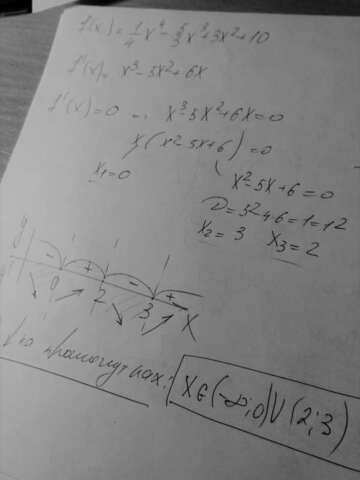 f(x) = 1/4 x⁴ - 5/3 x³ + 3x² + 10
f'(x) = x³ - 5x² + 6x
f'(x) = 0 ... x³ - 5x² + 6x = 0
x(x² - 5x + 6) = 0
x₁ = 0
x² - 5x + 6 = 0
D = 5² - 4·6 = 1 = 1²
x₂ = 3 x₃ = 2
y
- + - +
0 2 3 X
на промежутках:
X ∈ (-∞; 0) U (2; 3)